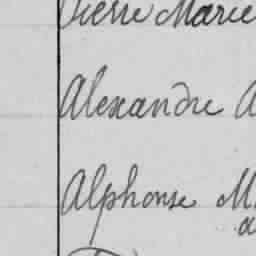 Pierre Marie
Alexandre A
Alphonse M